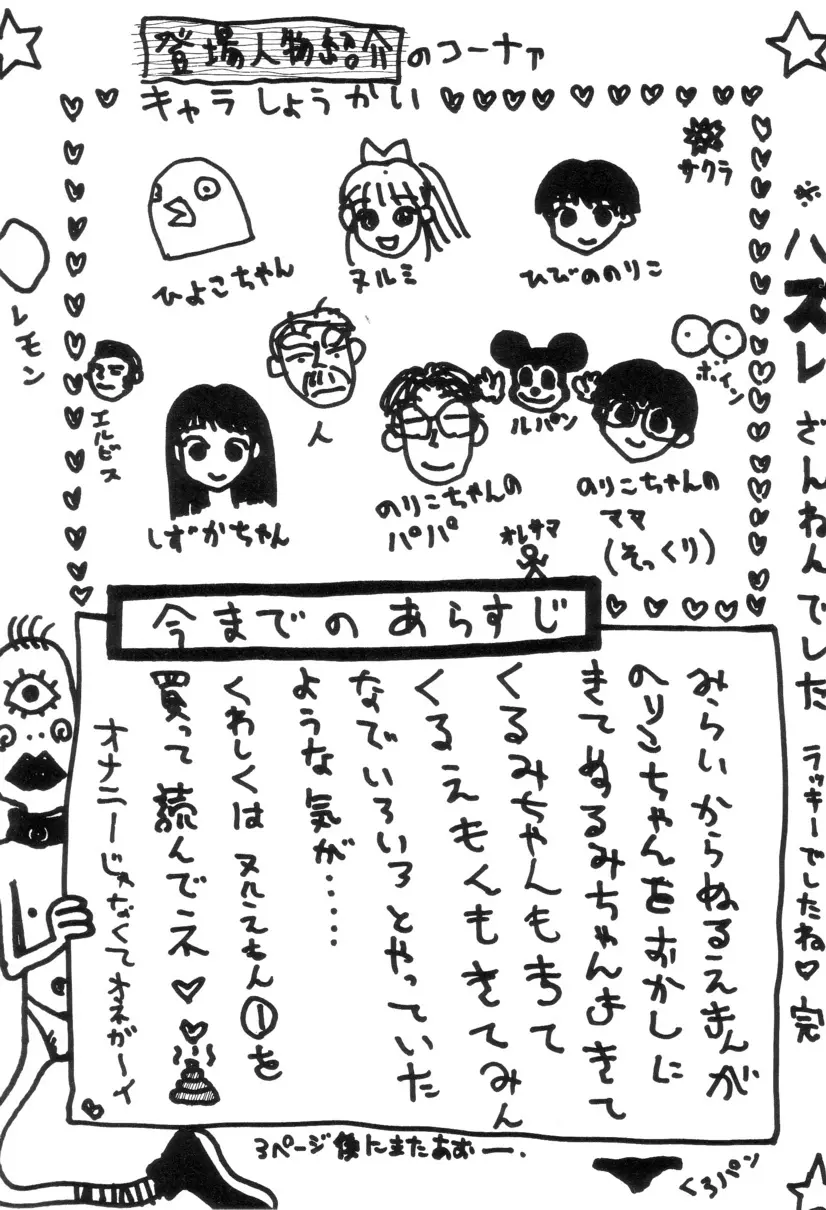 登場人物紹介のコーナァ
キャラしょうかい
サクラ
ひよこちゃん
ヌルミ
ひびののりこ
レモン
エルビス
人
ルパン
ボイン
しずかちゃん
のりこちゃんの
パパ
のりこちゃんの
ママ
(そっくり)
オレサマ
※ハズレ ざんねんでした ラッキーでしたね♡完
今までのあらすじ
みらいからぬるえもんが
のりこちゃんをおかしに
きてぬるみちゃんもきて
くるみちゃんも来て
くるえもんもきてみん
なでいろいろとやっていた
ような気が・・・・
くわしくはヌルえもん①を
買って読んでネ♡♡
オナニーじゃなくてオネガーイ
3ページ後にまたあおー.
くろパン